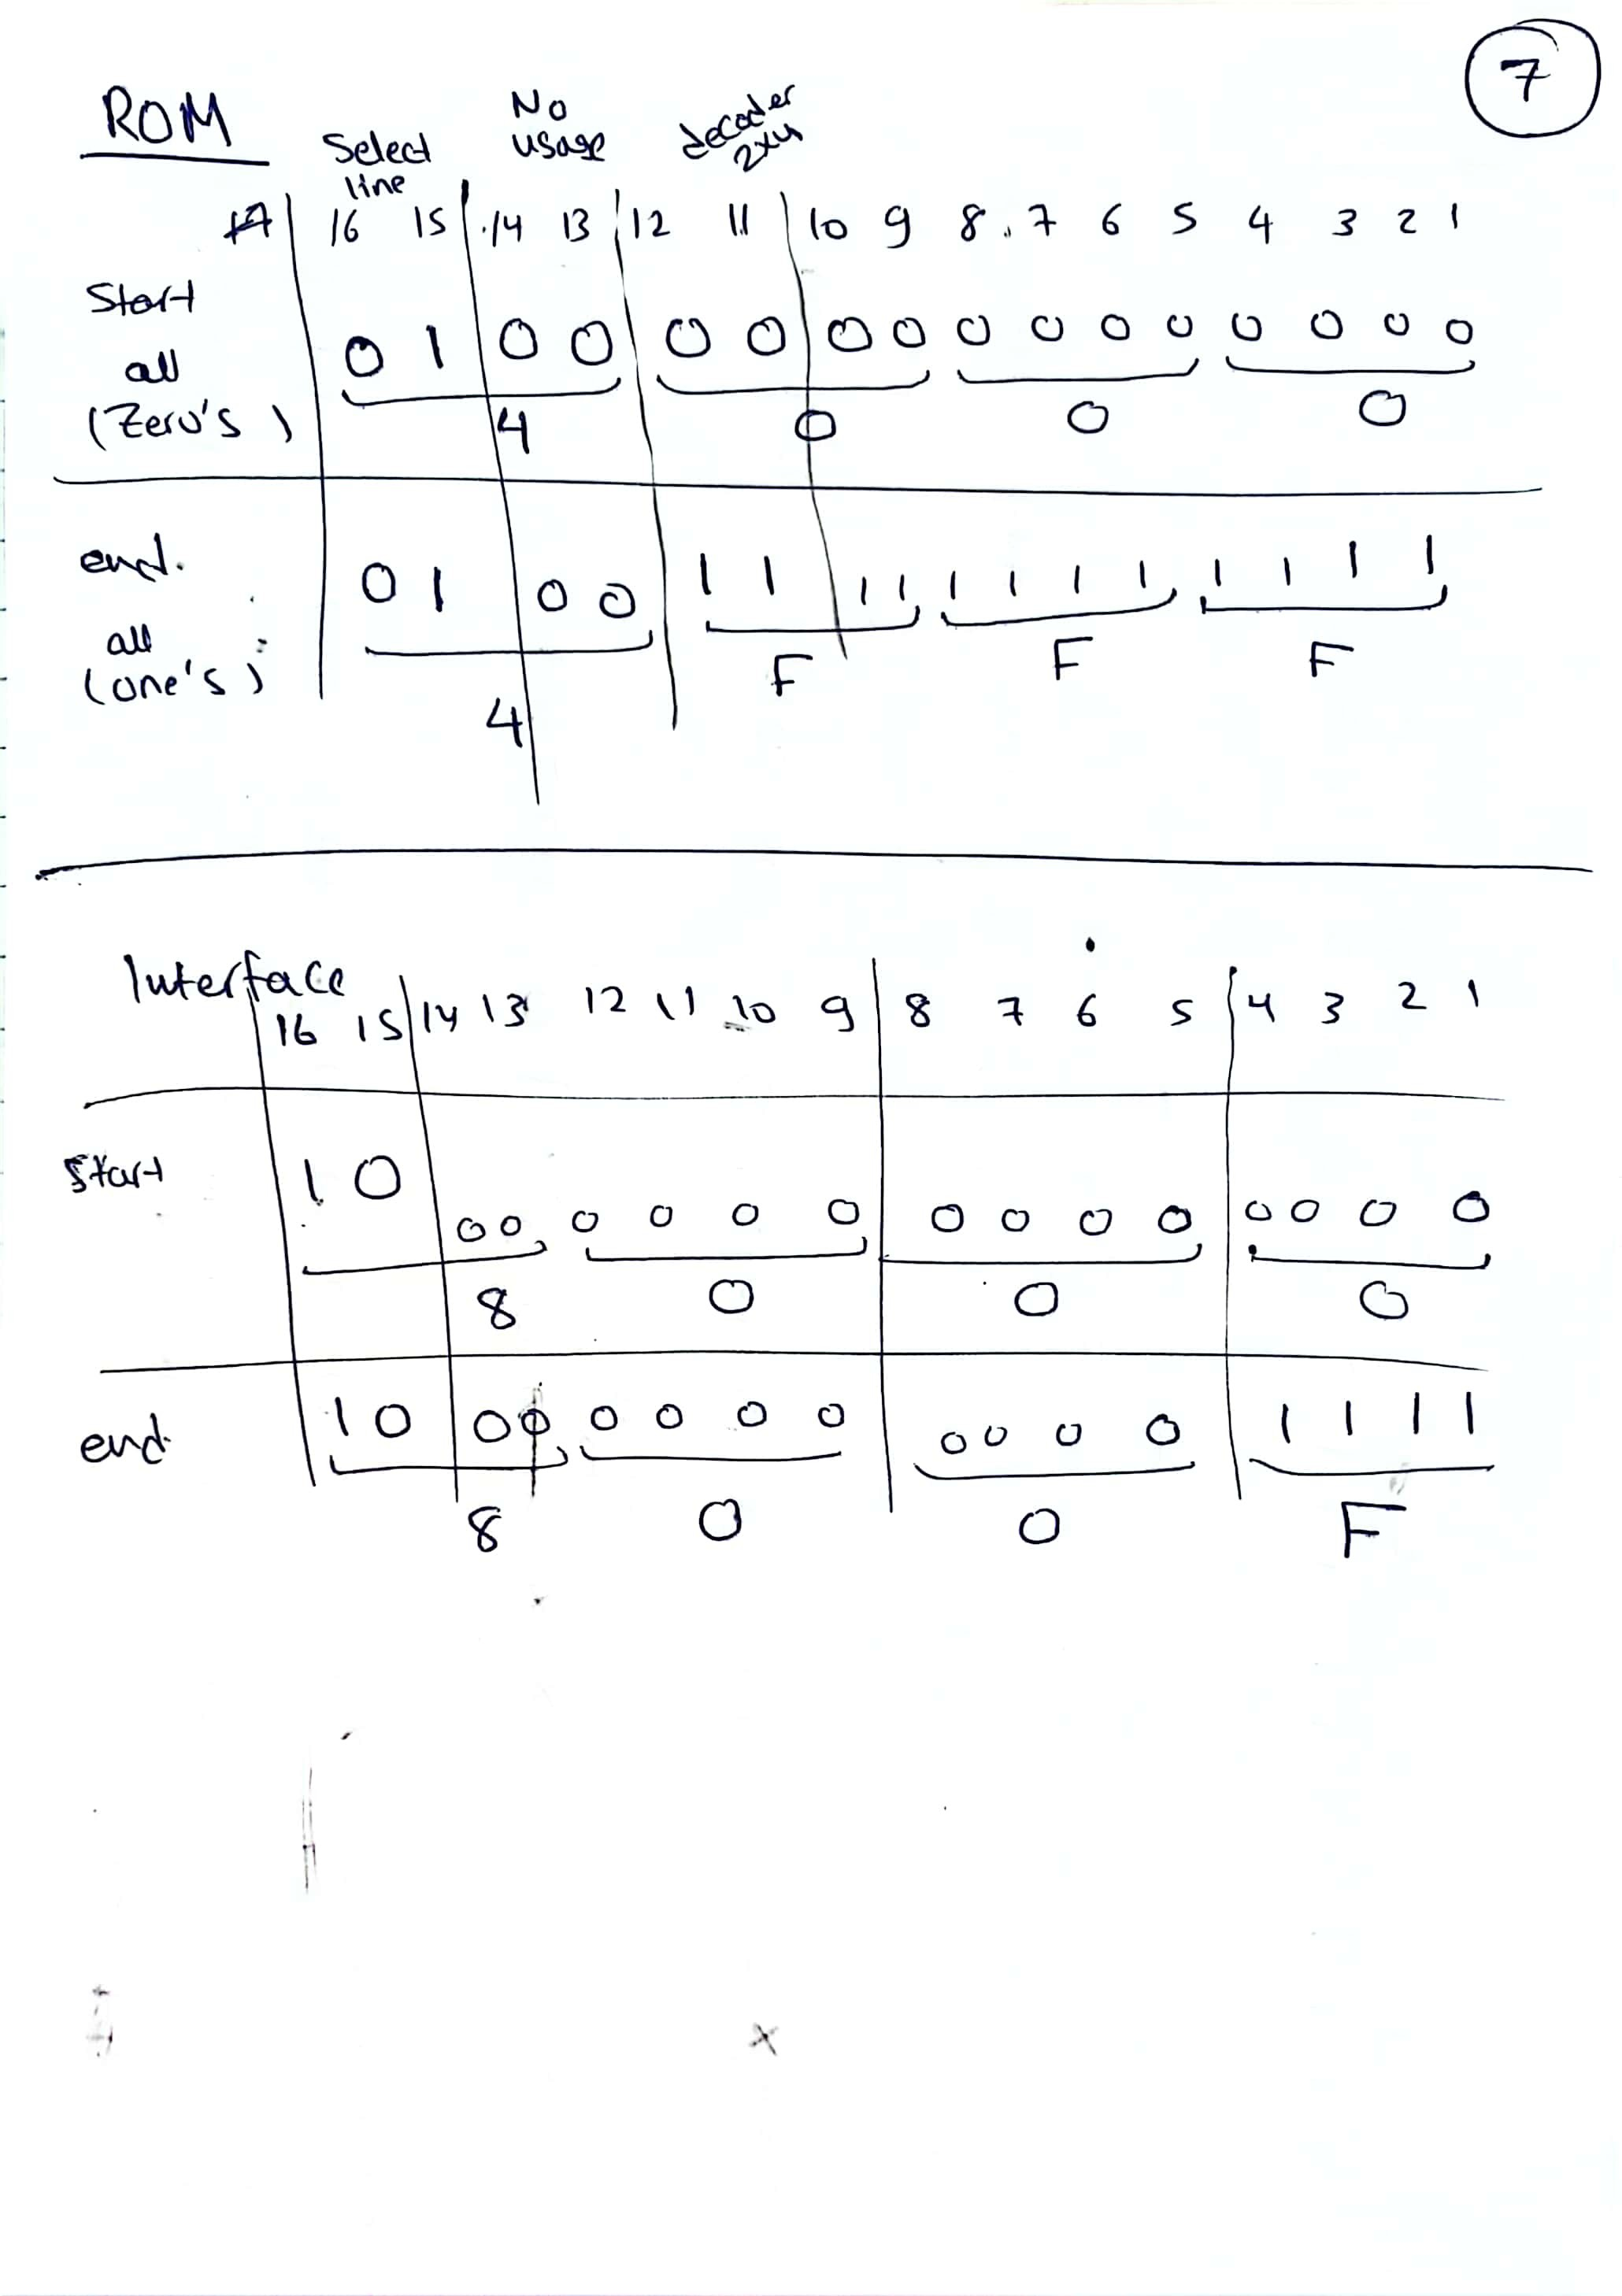 7
ROM
Select line
No usage
decoder 2x4
16 15 14 13 12 11 10 9 8 7 6 5 4 3 2 1
Start
all
(Zero's)
0 1 0 0 0 0 0 0 0 0 0 0 0 0 0 0
4 0 0 0
end.
all
(one's)
0 1 0 0 1 1 1 1 1 1 1 1 1 1 1 1
4 F F F
Interface
16 15 14 13 12 11 10 9 8 7 6 5 4 3 2 1
Start
1 0 0 0 0 0 0 0 0 0 0 0 0 0 0 0
8 0 0 0
end
1 0 0 0 0 0 0 0 0 0 0 0 1 1 1 1
8 0 0 F